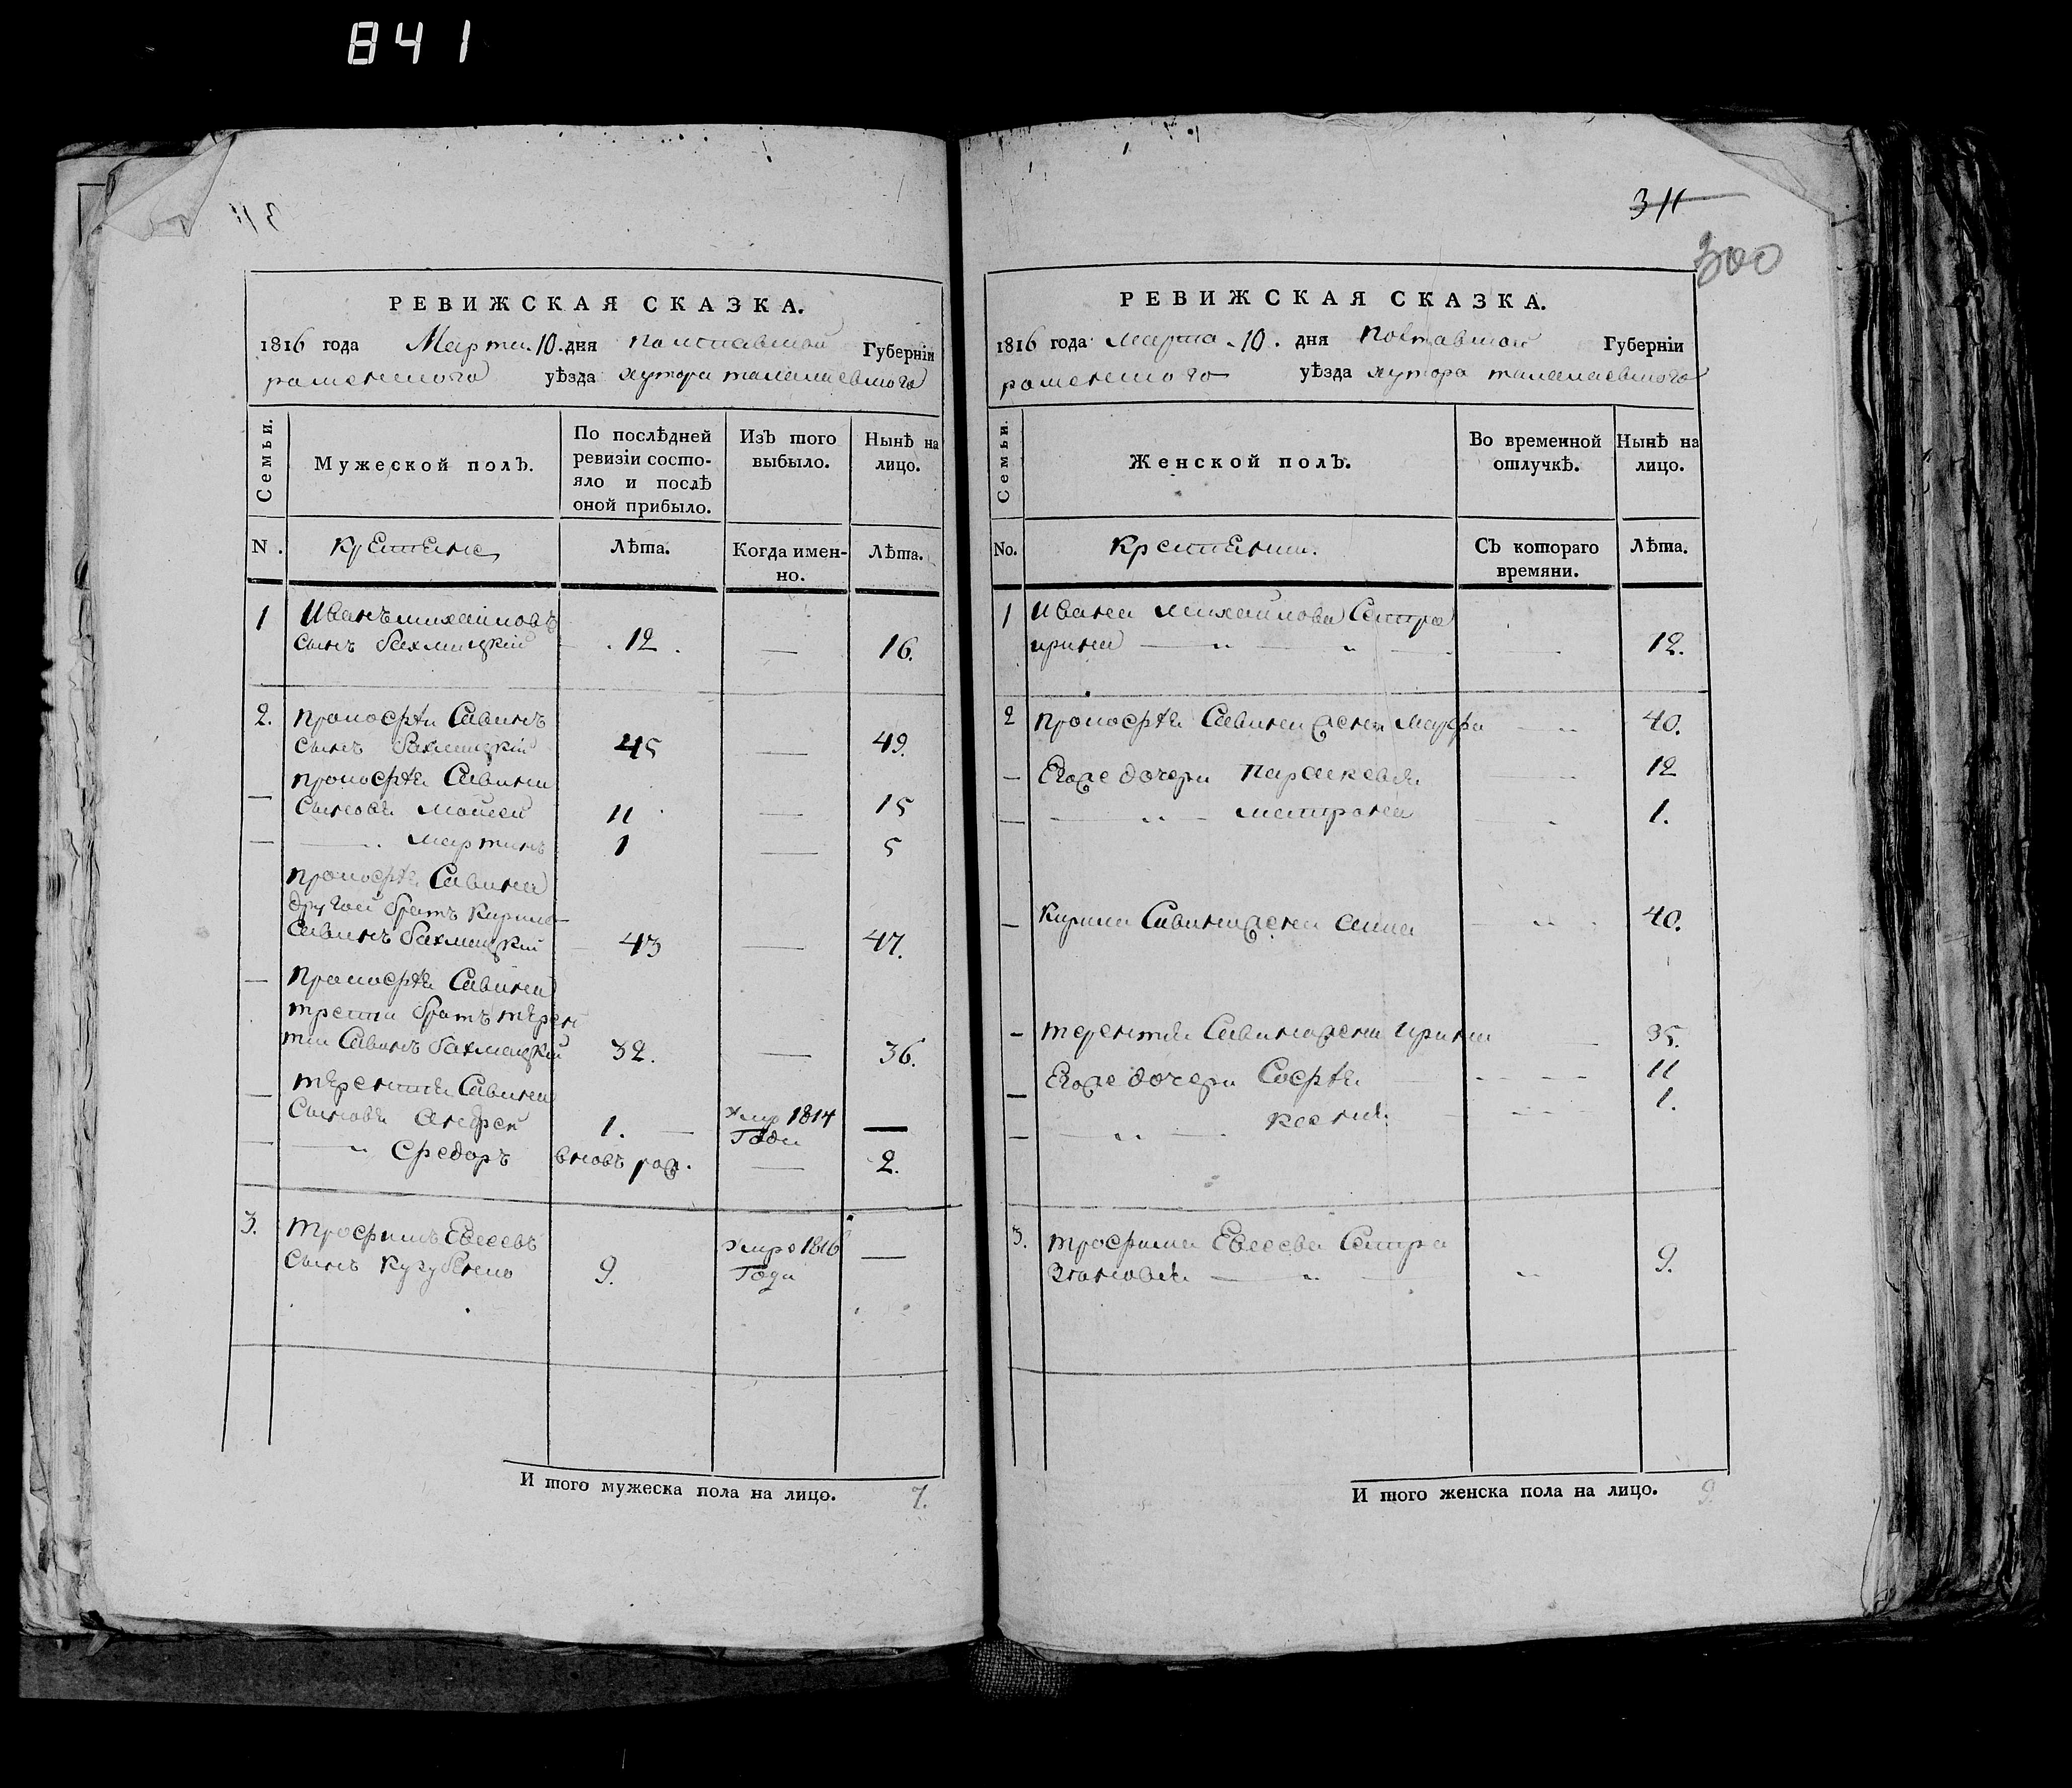 841
311
300
РЕВИЖСКАЯ СКАЗКА.
1816 года Марта 10. дня Полтавской Губерніи
роменского уѣзда хутора талалаевского
Семьи.
Мужеской полъ.
По послѣдней ревизіи состояло и послѣ оной прибыло.
Изъ того выбыло.
Нынѣ на лицо.
N.
Крестьяне
Лѣта.
Когда именно.
Лѣта.
1 Иванъ михайловъ
сынъ бахмацкій 12. — 16.
2. прокофѣй Савинъ
сынъ бахмацкій 45 — 49.
прокофѣя Савина
— сыновья мойсей 11 — 15
— мартинъ 1 — 5
прокофѣя Савина
другой братъ кирило
Савинъ бахмацкій 43 — 47.
— прокофѣя Савина
третій братъ терен
тій Савинъ бахмацкій 32. — 36.
— терентія Савина
сыновья андрей 1. — умр 1814 года —
— " федоръ вновь рож. — 2.
3. трофимъ Евсеевъ
сынъ кугубенко 9. умре 1816 года —
И того мужеска пола на лицо. 7.
РЕВИЖСКАЯ СКАЗКА.
1816 года марта 10. дня Полтавской Губерніи
роменского уѣзда хутора талалаевского
Семьи.
Женской полъ.
Во временной отлучкѣ.
Нынѣ на лицо.
No.
Крестьянки.
Съ котораго времяни.
Лѣта.
1 Ивана михайлова Сестра
ирина — " — " — 12.
2 прокофѣя Савина жена мауфра — " 40.
— Егоже дочери параскевия " 12
— " — матрона 1.
— Кирила Савина жена анна " 40.
— терентія Савина жена ирина — 35.
— Егоже дочери Софѣя 11
— " — ксения 1.
3. трофима Евсеева Сестра
Зѣновия — " — " 9.
И того женска пола на лицо. 9.